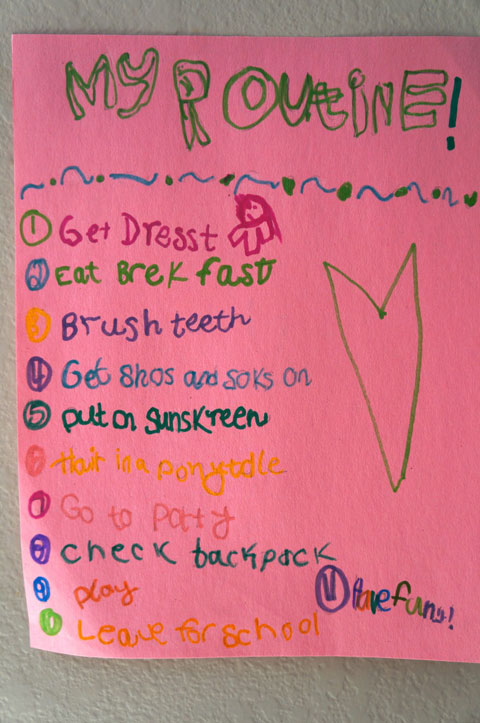 MY ROUtiNE!
1 Get Dresst
2 Eat Brekfast
3 Brush teeth
4 Get Shos and soks on
5 put on sunskreen
6 Hair in a ponytdle
7 Go to Potty
8 check backpack
9 play
10 Leave for school
11 Have fun!